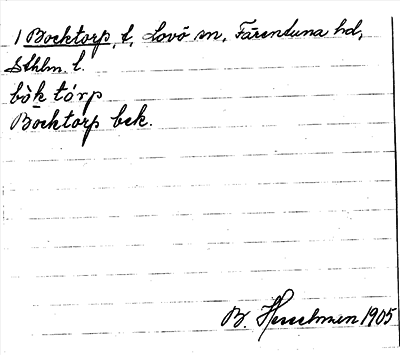 1 Bocktorp, t, Lovö sn, Färentuna hd,
Sthlm. l.
bòk tórp
Bocktorp bek.
B. Hesselman 1905